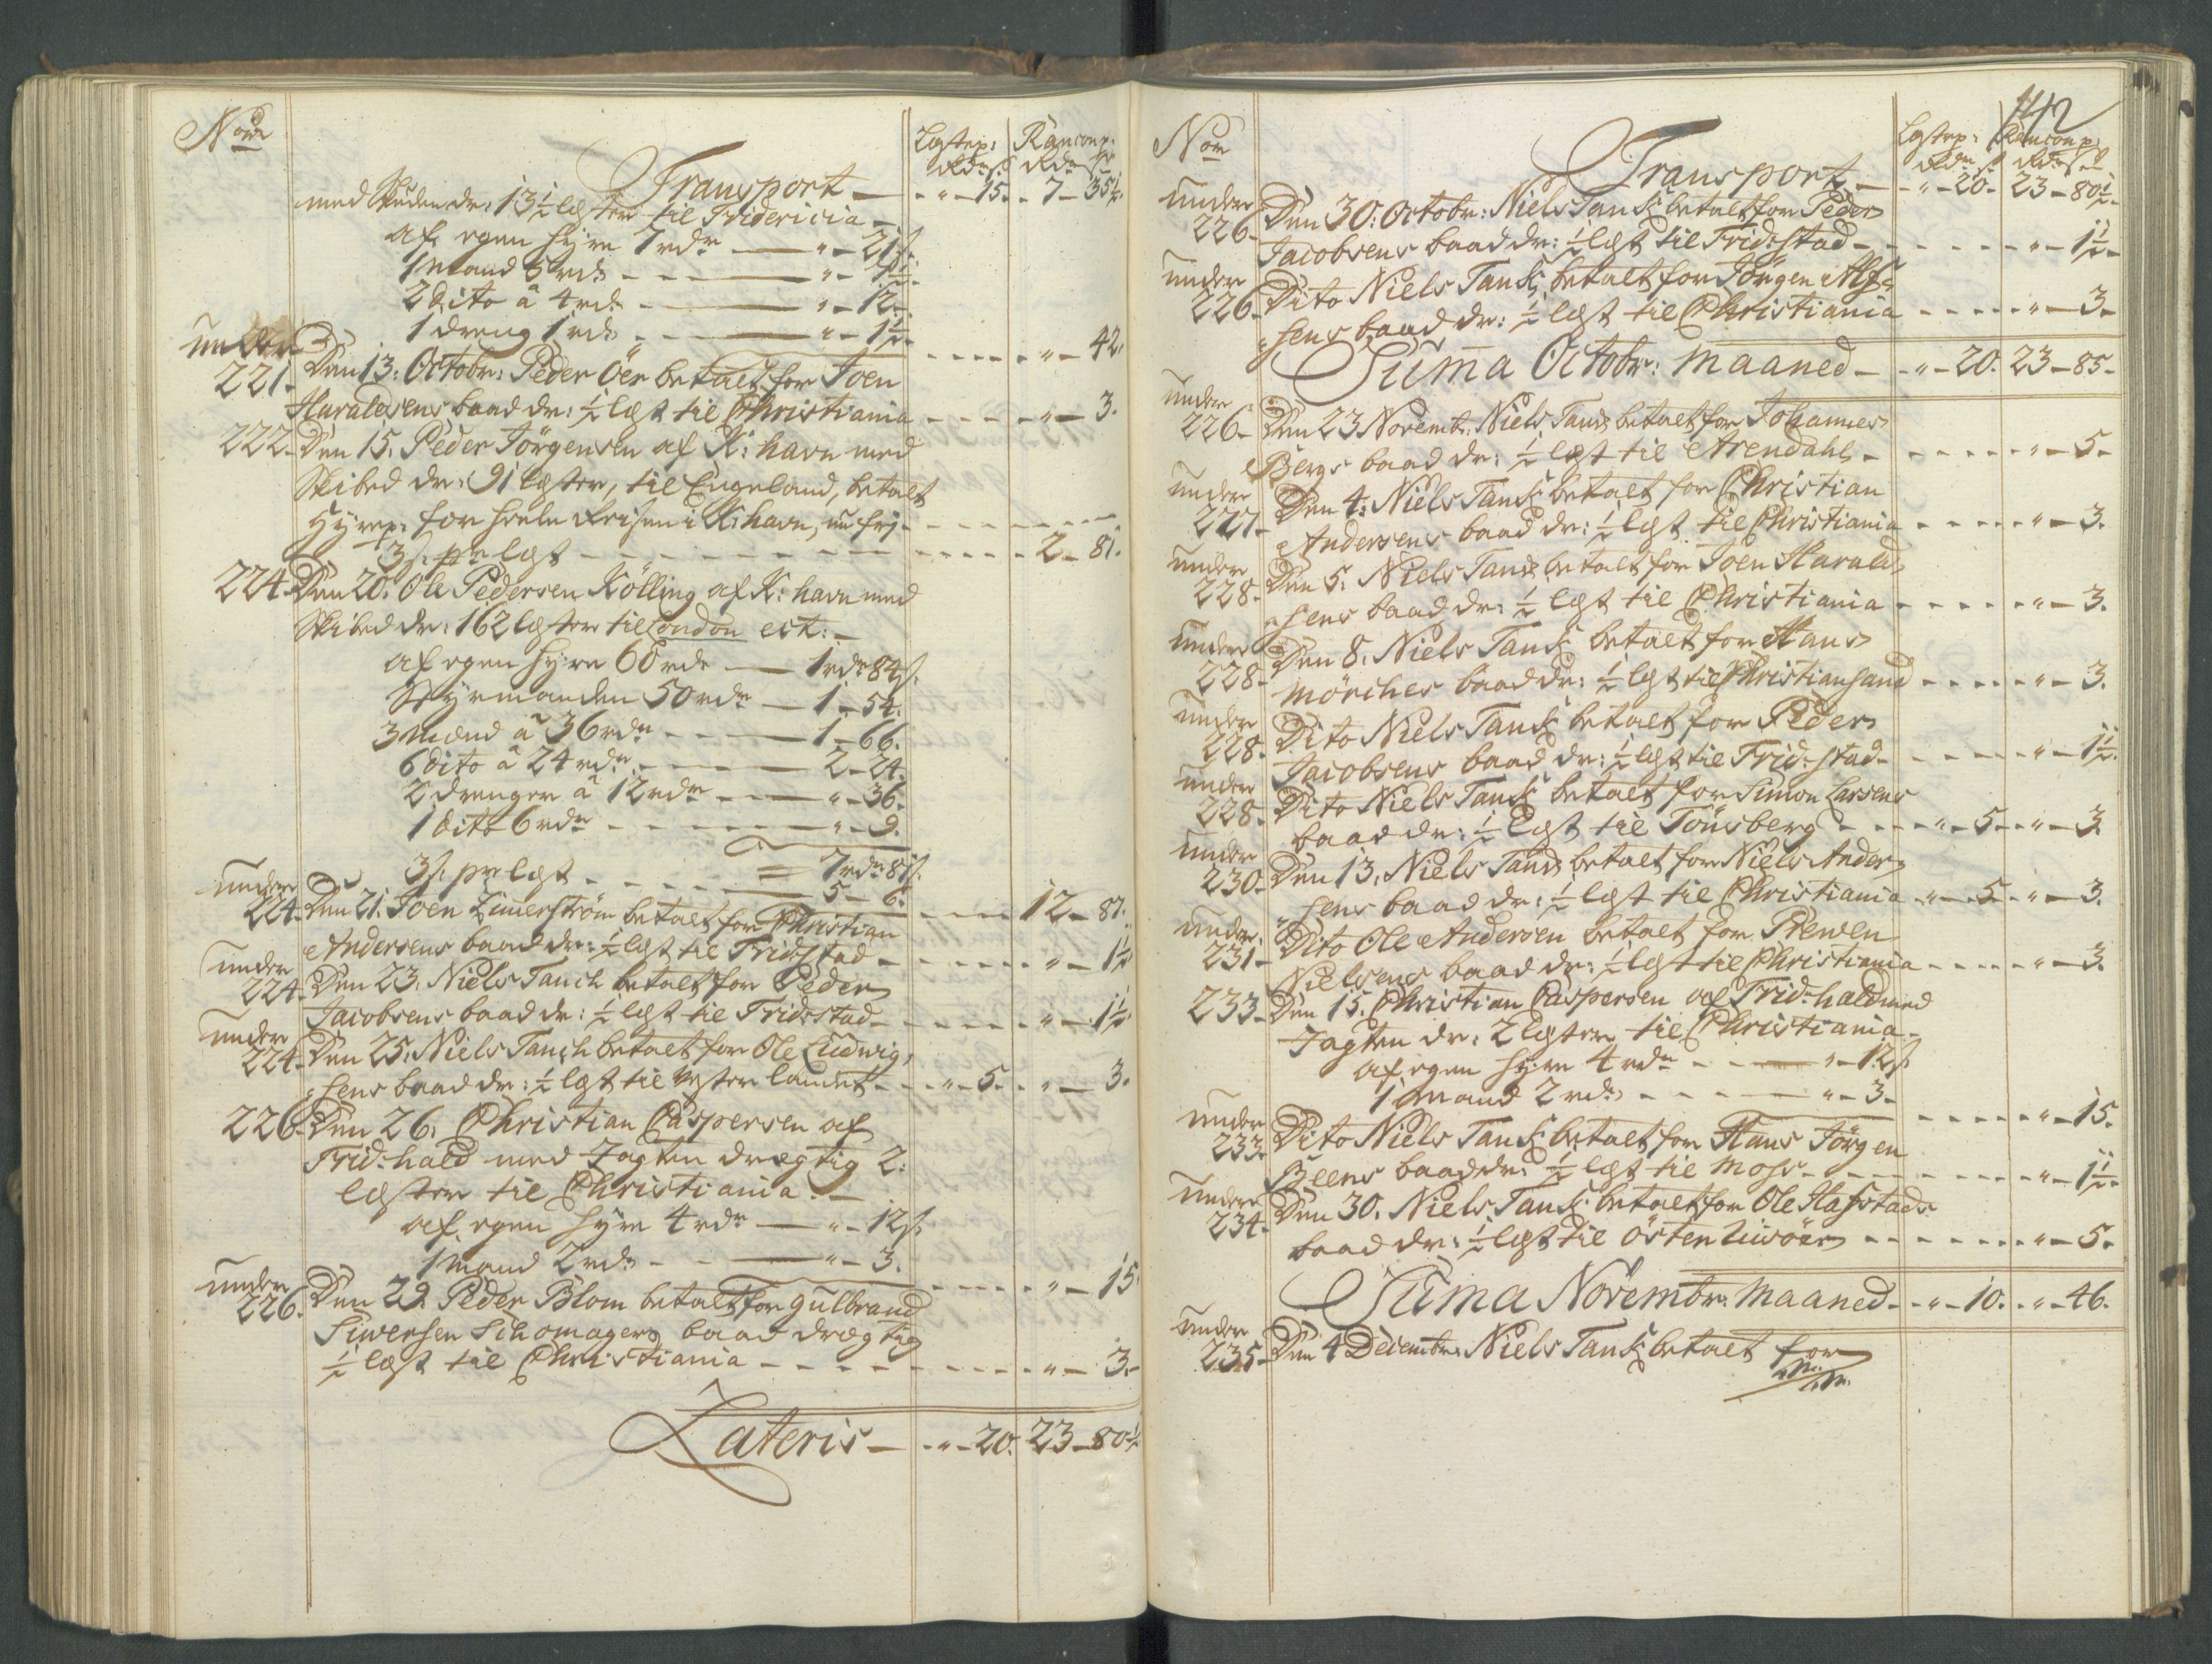 No͞m
Lastep: Ranconp:
Rdr s. Rdr s.
Transport — - " - 15. - 7 - 35½.
med Skuden dr: 13½ læster til Fridericia -
af egen Hyre 7 rdr — " - 21 s.
1 Mand 5 rdr - - - — " - 7½.
2 dito â 4 rdr - - — " - 12.
1 dreng 1 rdr - - — " - 1½.
- - - - " - 42.
under
221. Den 13: Octobr: Peder Öer betalt for Joen
Haraldsens baad dr: ½ læst til Christiania - - - - " - 3.
222. Den 15. Peder Jörgensen af K: havn med
Skibed dr: 91 læster, til Engeland, betalt
Hyrep: for heele Reisen i K: havn, nu frj - - - -
3 s. pr læst - - - - - - - - - - 2 - 81.
224. Den 20. Ole Pedersen Kölling af K: havn med
Skibed dr: 162 læster til London ect: -
af egen Hyre 60 rdr — 1 rdr 84 s.
Styrmanden 50 rdr — 1 - 54.
3 Mænd â 36 rdr - - — 1 - 66.
6 dito â 24 rdr - - — 2 - 24.
2 drenger â 12 rdr - - — " - 36.
1 dito 6 rdr - - - — " - 9.
= 7 rdr 81 s.
3 s. pr læst - - - - — 5 - 6.
- - - 12 - 87.
under
224. Den 21. Joen Zimerström betalt for Christian
Andersens baad dr: ½ læst til Fridstad - - - - - " - 1½.
under
224. Den 23. Niels Tanck betalt for Peder
Jacobsens baad dr: ½ læst til Fridestad - - - - - " - 1½.
under
224. Den 25. Niels Tanck betalt for Ole Ludwig„
„sens baad dr: ½ læst til Vester landet - - " - 5. - " - 3.
226. Den 26. Christian Caspersen af
Frid-hald med Jagten drægtig 2:
læster til Christiania. -
af egen Hyre 4 rdr — " - 12 s.
1 Mand 2 rdr - - — " - 3.
- - - - - " - 15.
under
226. Den 29. Peder Blom betalt for Gulbrand
Siwersen Schomagers baad drægtig
½ læst til Christiania - - - - - - - - " - 3. -
Lateris - - " - 20. 23 - 80½.
142
No͞m
Lastep: Ranconp:
Rdr s. Rdr s.
Transport - - " - 20. 23 - 80½.
under
226. Den 30: Octobr: Niels Tank betalt for Peder
Jacobsens baad dr: ½ læst til Frid:stad - - - - - " - 1½.
under
226. Dito Niels Tank betalt for Jörgen Alf„
„sens baad dr: ½ læst til Christiania - - - - " - 3.
Sum̅a Octobr: Maaned - - " - 20. 23 - 85 -
under
226. Den 23 Novembr: Niels Tank betalt for Johannes
Bergs baad dr: ½ læst til Arendahl - - - - - " - 5.
under
227. Den 4: Niels Tank betalt for Christian
Andersens baad dr: ½ læst til Christiania - - - - " - 3.
under
228. Den 5. Niels Tank betalt for Joen Harald„
„sens baad dr: ½ læst til Christiania - - - - - " - 3.
under
228. Den 8. Niels Tank betalt for Hans
Mörches baad dr: ½ læst til Christiansand - - - - " - 3.
under
228. Dito Niels Tank betalt for Peder
Jacobsens baad dr: ½ læst til Frid-stad - - - - - " - 1½.
under
228. Dito Niels Tank betalt for Simon Larsens
baad dr: ½ læst til Tönsberg - - - " - 5 - " - 3.
under
230. Den 13. Niels Tank betalt for Niels Anders„
„sens baad dr: ½ læst til Christiania - " - 5 - " - 3.
under
231. Dito Ole Andersen betalt for Prewen
Nielsens baad dr: ½ læst til Christiania - - - - " - 3.
233. Den 15. Christian Caspersen af Frid-hald med
Jagten dr: 2 læster til Christiania -
af egen Hyre 4 rdr - - — " - 12 s.
1 Mand 2 rdr - - - — " - 3 -
- - - - - " - 15.
under
233. Dito Niels Tank betalt for Hans Jörgen
Beens baad dr: ½ læst til Moss - - - - - - " - 1½.
under
234. Den 30. Niels Tank betalt for Ole Hafstads
baad dr: ½ læst til Östen - - - - - - " - 5.
Sum̅a Novembr: Maaned - - " - 10. - " - 46.
under
235. Den 4 Decembr: Niels Tank betalt for